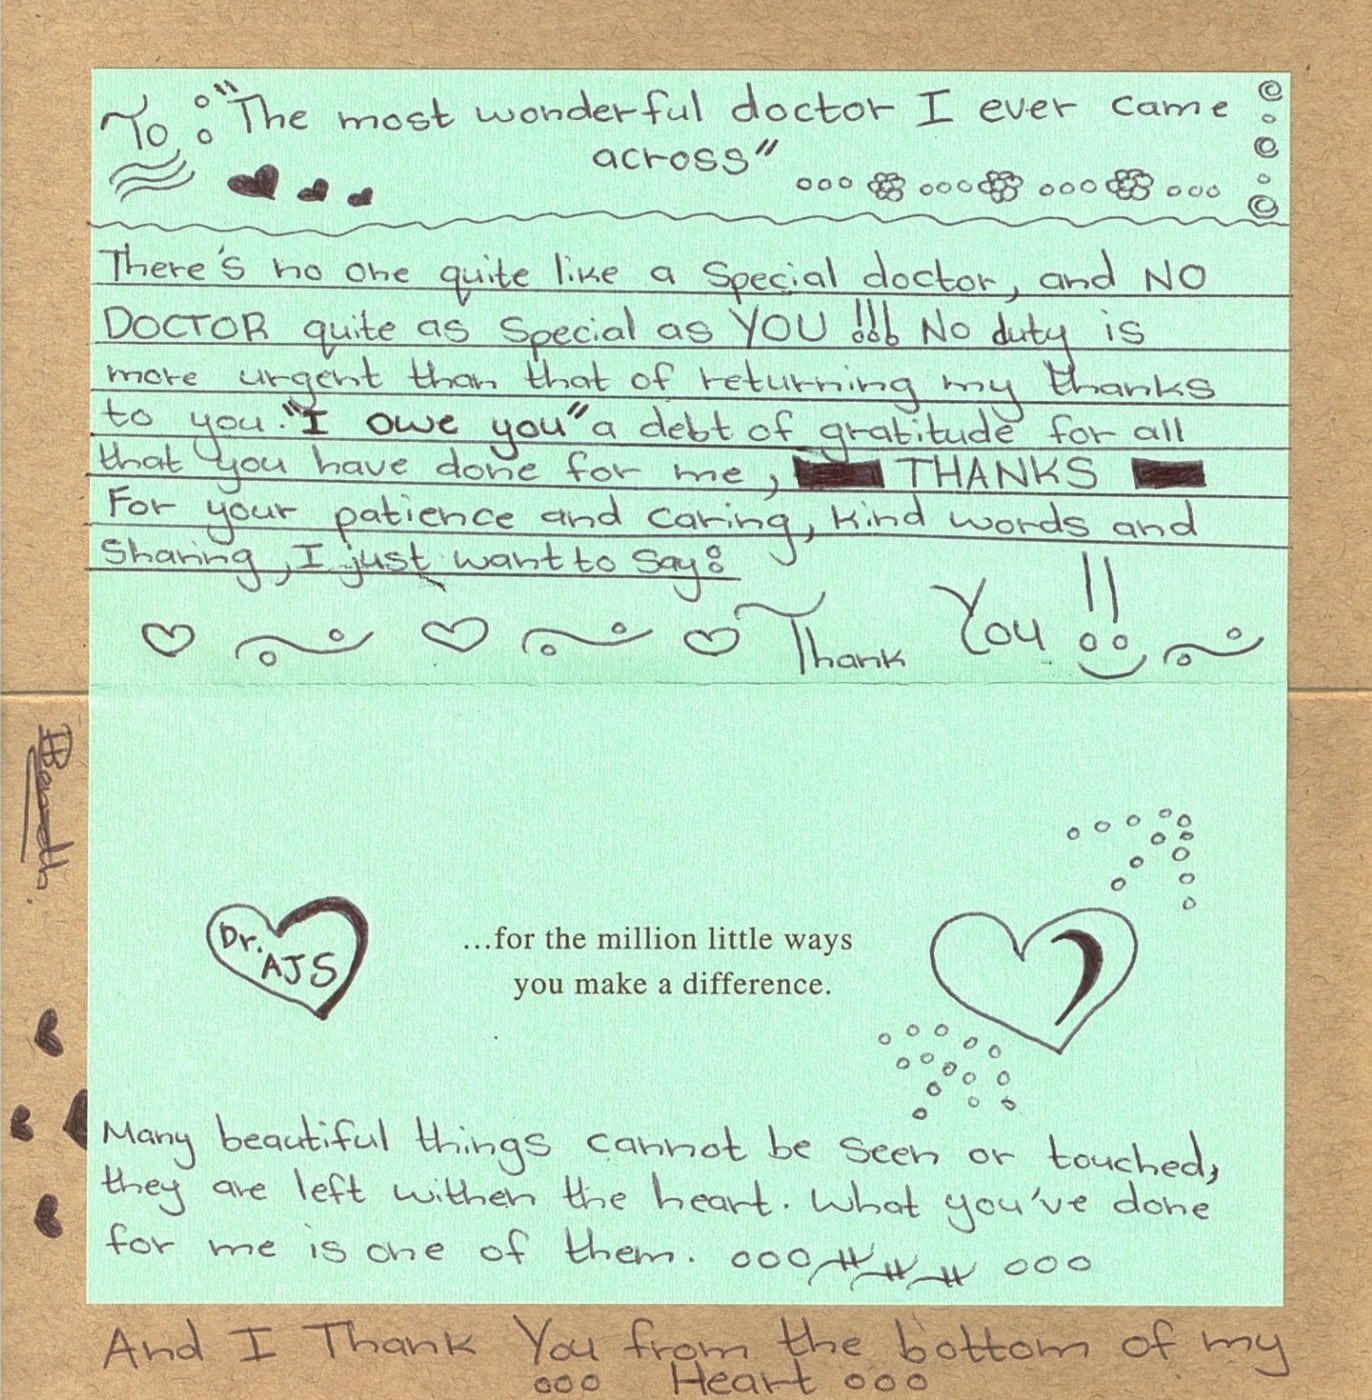 To : "The most wonderful doctor I ever came
across"
There's no one quite like a special doctor, and NO
DOCTOR quite as special as YOU !!! No duty is
more urgent than that of returning my thanks
to you. "I owe you" a debt of gratitude for all
that you have done for me, THANKS
For your patience and caring, kind words and
sharing, I just want to say:
Thank You !!
Dr.
AJS
...for the million little ways
you make a difference.
Many beautiful things cannot be seen or touched,
they are left withen the heart. What you've done
for me is one of them.
And I Thank You from the bottom of my
Heart